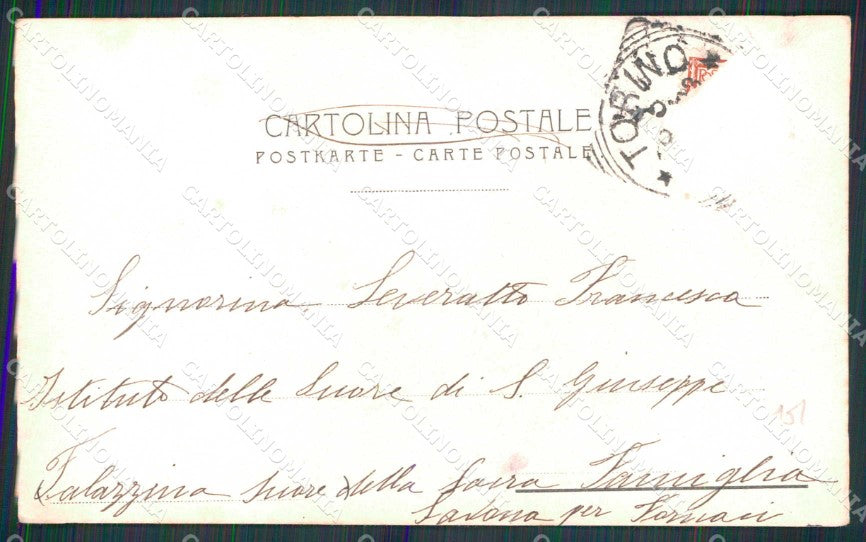 CARTOLINA POSTALE
POSTKARTE - CARTE POSTALE
TORINO
Signorina Severatto Francesca
Istituto delle Suore di S. Giuseppe
151
Palazzina Suore della Sacra Famiglia
Savona per Fornaci
CARTOLINOMANIA